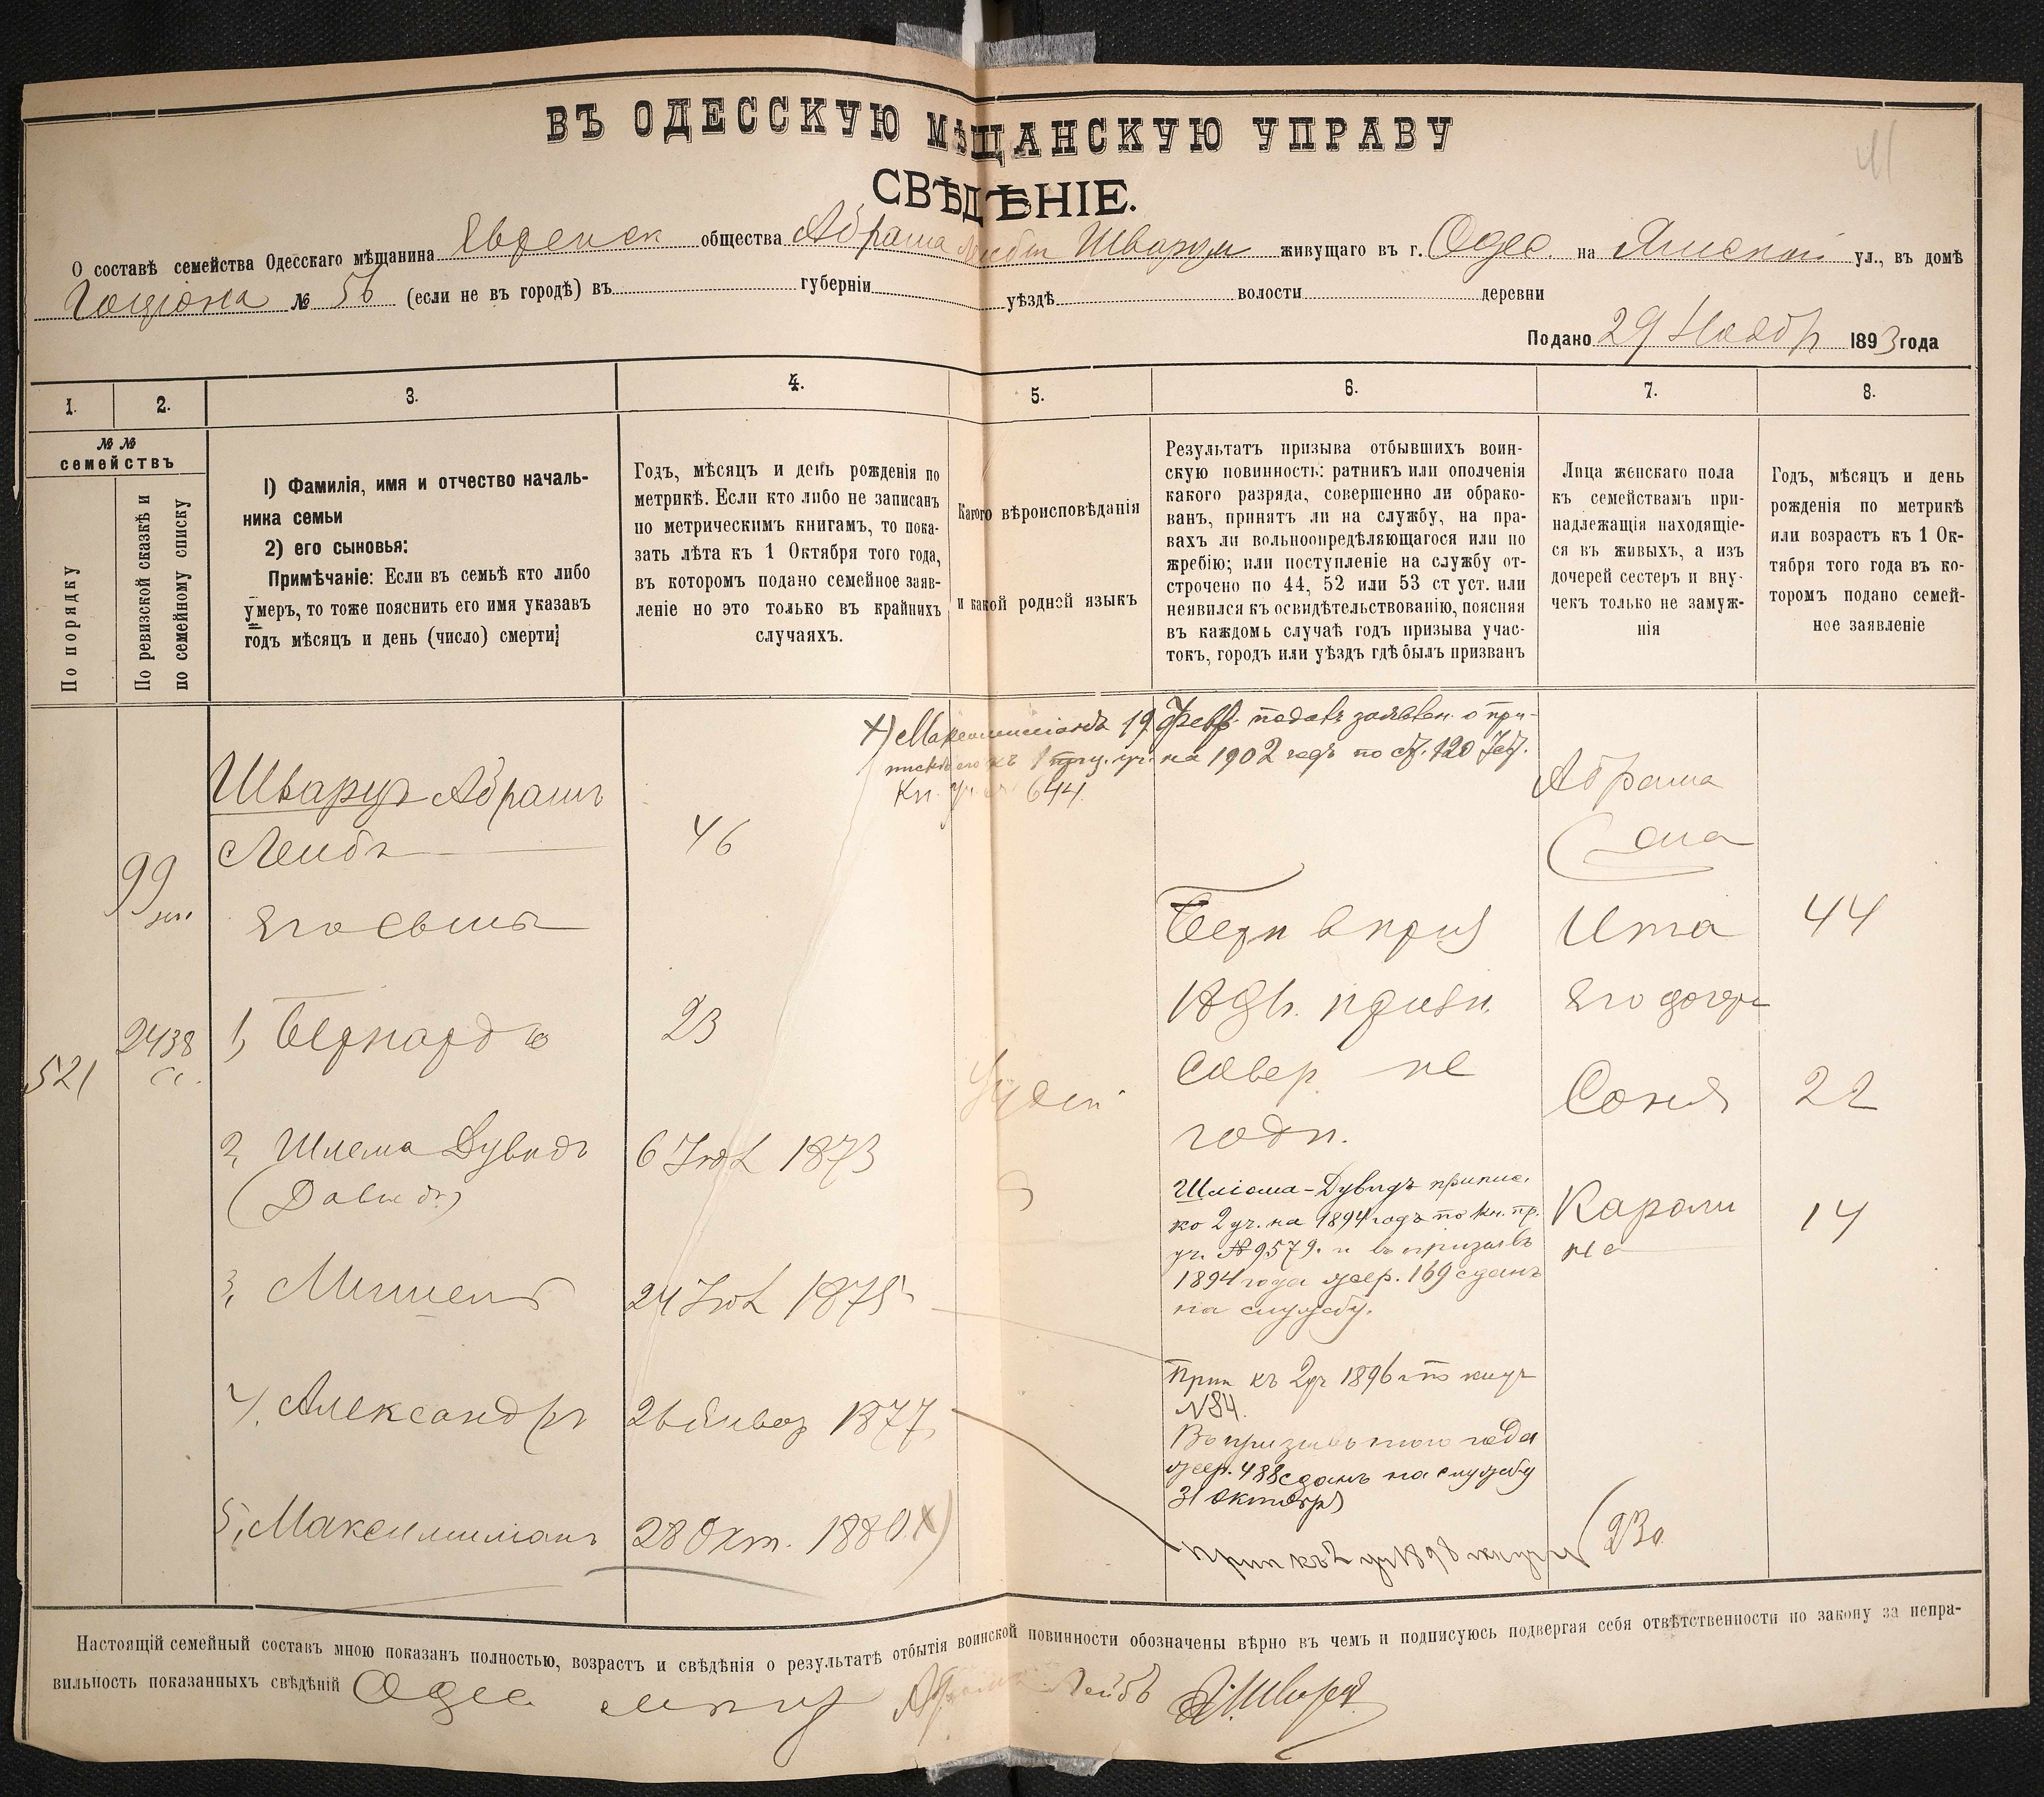 41
ВЪ ОДЕССКУЮ МѢЩАНСКУЮ УПРАВУ
СВѢДѢНІЕ.
О составѣ семейства Одесскаго мѣщанина Еврейск общества Абрама Лейбы Шварца живущаго въ г. Одес. на ул., въ домѣ
№ 56 (если не въ городѣ) въ губерніи уѣздѣ волости деревни
Подано 29 Ноябр 1893 года
1. 2. 3. 4. 5. 6. 7. 8.
№ №
семействъ
По порядку
По ревизской сказкѣ и
по семейному списку
1) Фамилія, имя и отчество началь-
ника семьи
2) его сыновья:
Примѣчаніе: Если въ семьѣ кто либо
умеръ, то тоже пояснить его имя указавъ
годъ мѣсяцъ и день (число) смерти;
Годъ, мѣсяцъ и день рожденія по
метрикѣ. Если кто либо не записанъ
по метрическимъ книгамъ, то пока-
зать лѣта къ 1 Октября того года,
въ которомъ подано семейное заяв-
леніе но это только въ крайнихъ
случаяхъ.
Какого вѣроисповѣданія
и какой родной языкъ
Результатъ призыва отбывшихъ воин-
скую повинность: ратникъ или ополченія
какого разряда, совершенно ли обрако-
ванъ, принятъ ли на службу, на пра-
вахъ ли вольноопредѣляющагося или по
жребію; или поступленіе на службу от-
строчено по 44, 52 или 53 ст уст. или
неявился къ освидѣтельствованію, поясняя
въ каждомь случаѣ годъ призыва учас-
токъ, городъ или уѣздъ гдѣ былъ призванъ
Лица женскаго пола
къ семействамъ при-
надлежащія находящіе-
ся въ живыхъ, а изъ
дочерей сестеръ и вну-
чекъ только не замуж-
нія
Годъ, мѣсяцъ и день
рожденія по метрикѣ
или возрастъ къ 1 Ок-
тября того года въ ко-
торомъ подано семей-
ное заявленіе
х) Максимиліанъ 19 Февр. подалъ заявлен. о при-
пискѣ его къ 1 уч. на 1902 годъ по ст. 120 Уст.
Кн. уч. 644
99
521
2438
Шварцъ Абрамъ
Лейбъ
46
Его сыны
1, Бернардъ
23
2, Шлема Дувидъ
(Давидъ)
6 Іюл 1873
3, Мишель
24 Іюл 1875
4, Александръ
26 Январ 1877
5, Максимиліанъ
28 Окт. 1880 х)
Берн в приз
призн.
совер не
годн.
Шліома-Дувидъ припис.
ко 2 уч. на 1894 годъ по кн. пр.
уч. № 9579. и въ призывъ
1894 года жер. 169 сданъ
на службу.
Прип къ 2 уч 1896 г по книг
№84.
Въ призывъ того года
жер. 488 сданъ на службу
31 октября
Прип къ 2 уч 1898 книг
230
Абрама
жена
Ита 44
Его дочери
Соня 22
Кароли
на 14
Настоящій семейный составъ мною показанъ полностью, возрастъ и свѣдѣнія о результатѣ отбытія воинской повинности обозначены вѣрно въ чемъ и подписуюсь подвергая себя отвѣтственности по закону за непра-
вильность показанныхъ свѣдѣній Одес Абрамъ Лейбъ Шварцъ